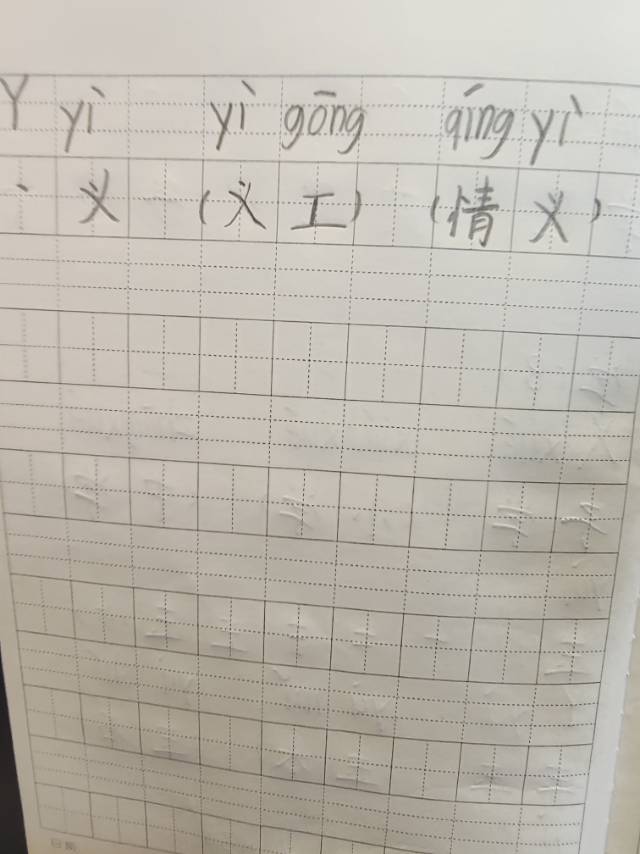 Y yì yì gōng qíng yì
丶 义 (义 工) (情 义)
日期